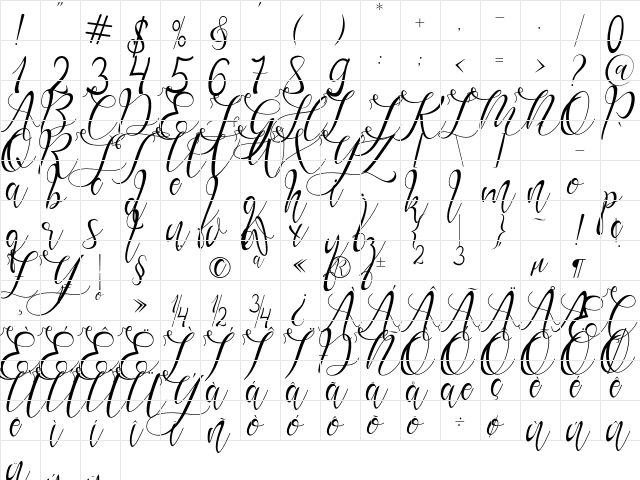 ! " # $ % & ' ( ) * + , – . / 0
1 2 3 4 5 6 7 8 9 : ; < = > ? @
A B C D E F G H I J K L M N O P
Q R S T U V W X Y Z \ –
a b c d e f g h i j k l m n o p
q r s t u v w x y z { | } ~ ! ¢
£ ¥ ¦ § © ª « ® ± 2 3 " µ ¶
¸ º » ¼ ½ ¾ ¿ À Á Â Ã Ä Å Æ Ç
È É Ê Ë Ì Í Î Ï Ð Ñ Ò Ó Ô Õ Ö Ø
Ù Ú Û Ü Ý à á â ã ä å æ ç è é ê
ë ì í î ï ñ ò ó ô õ ö ÷ ø ù ú û